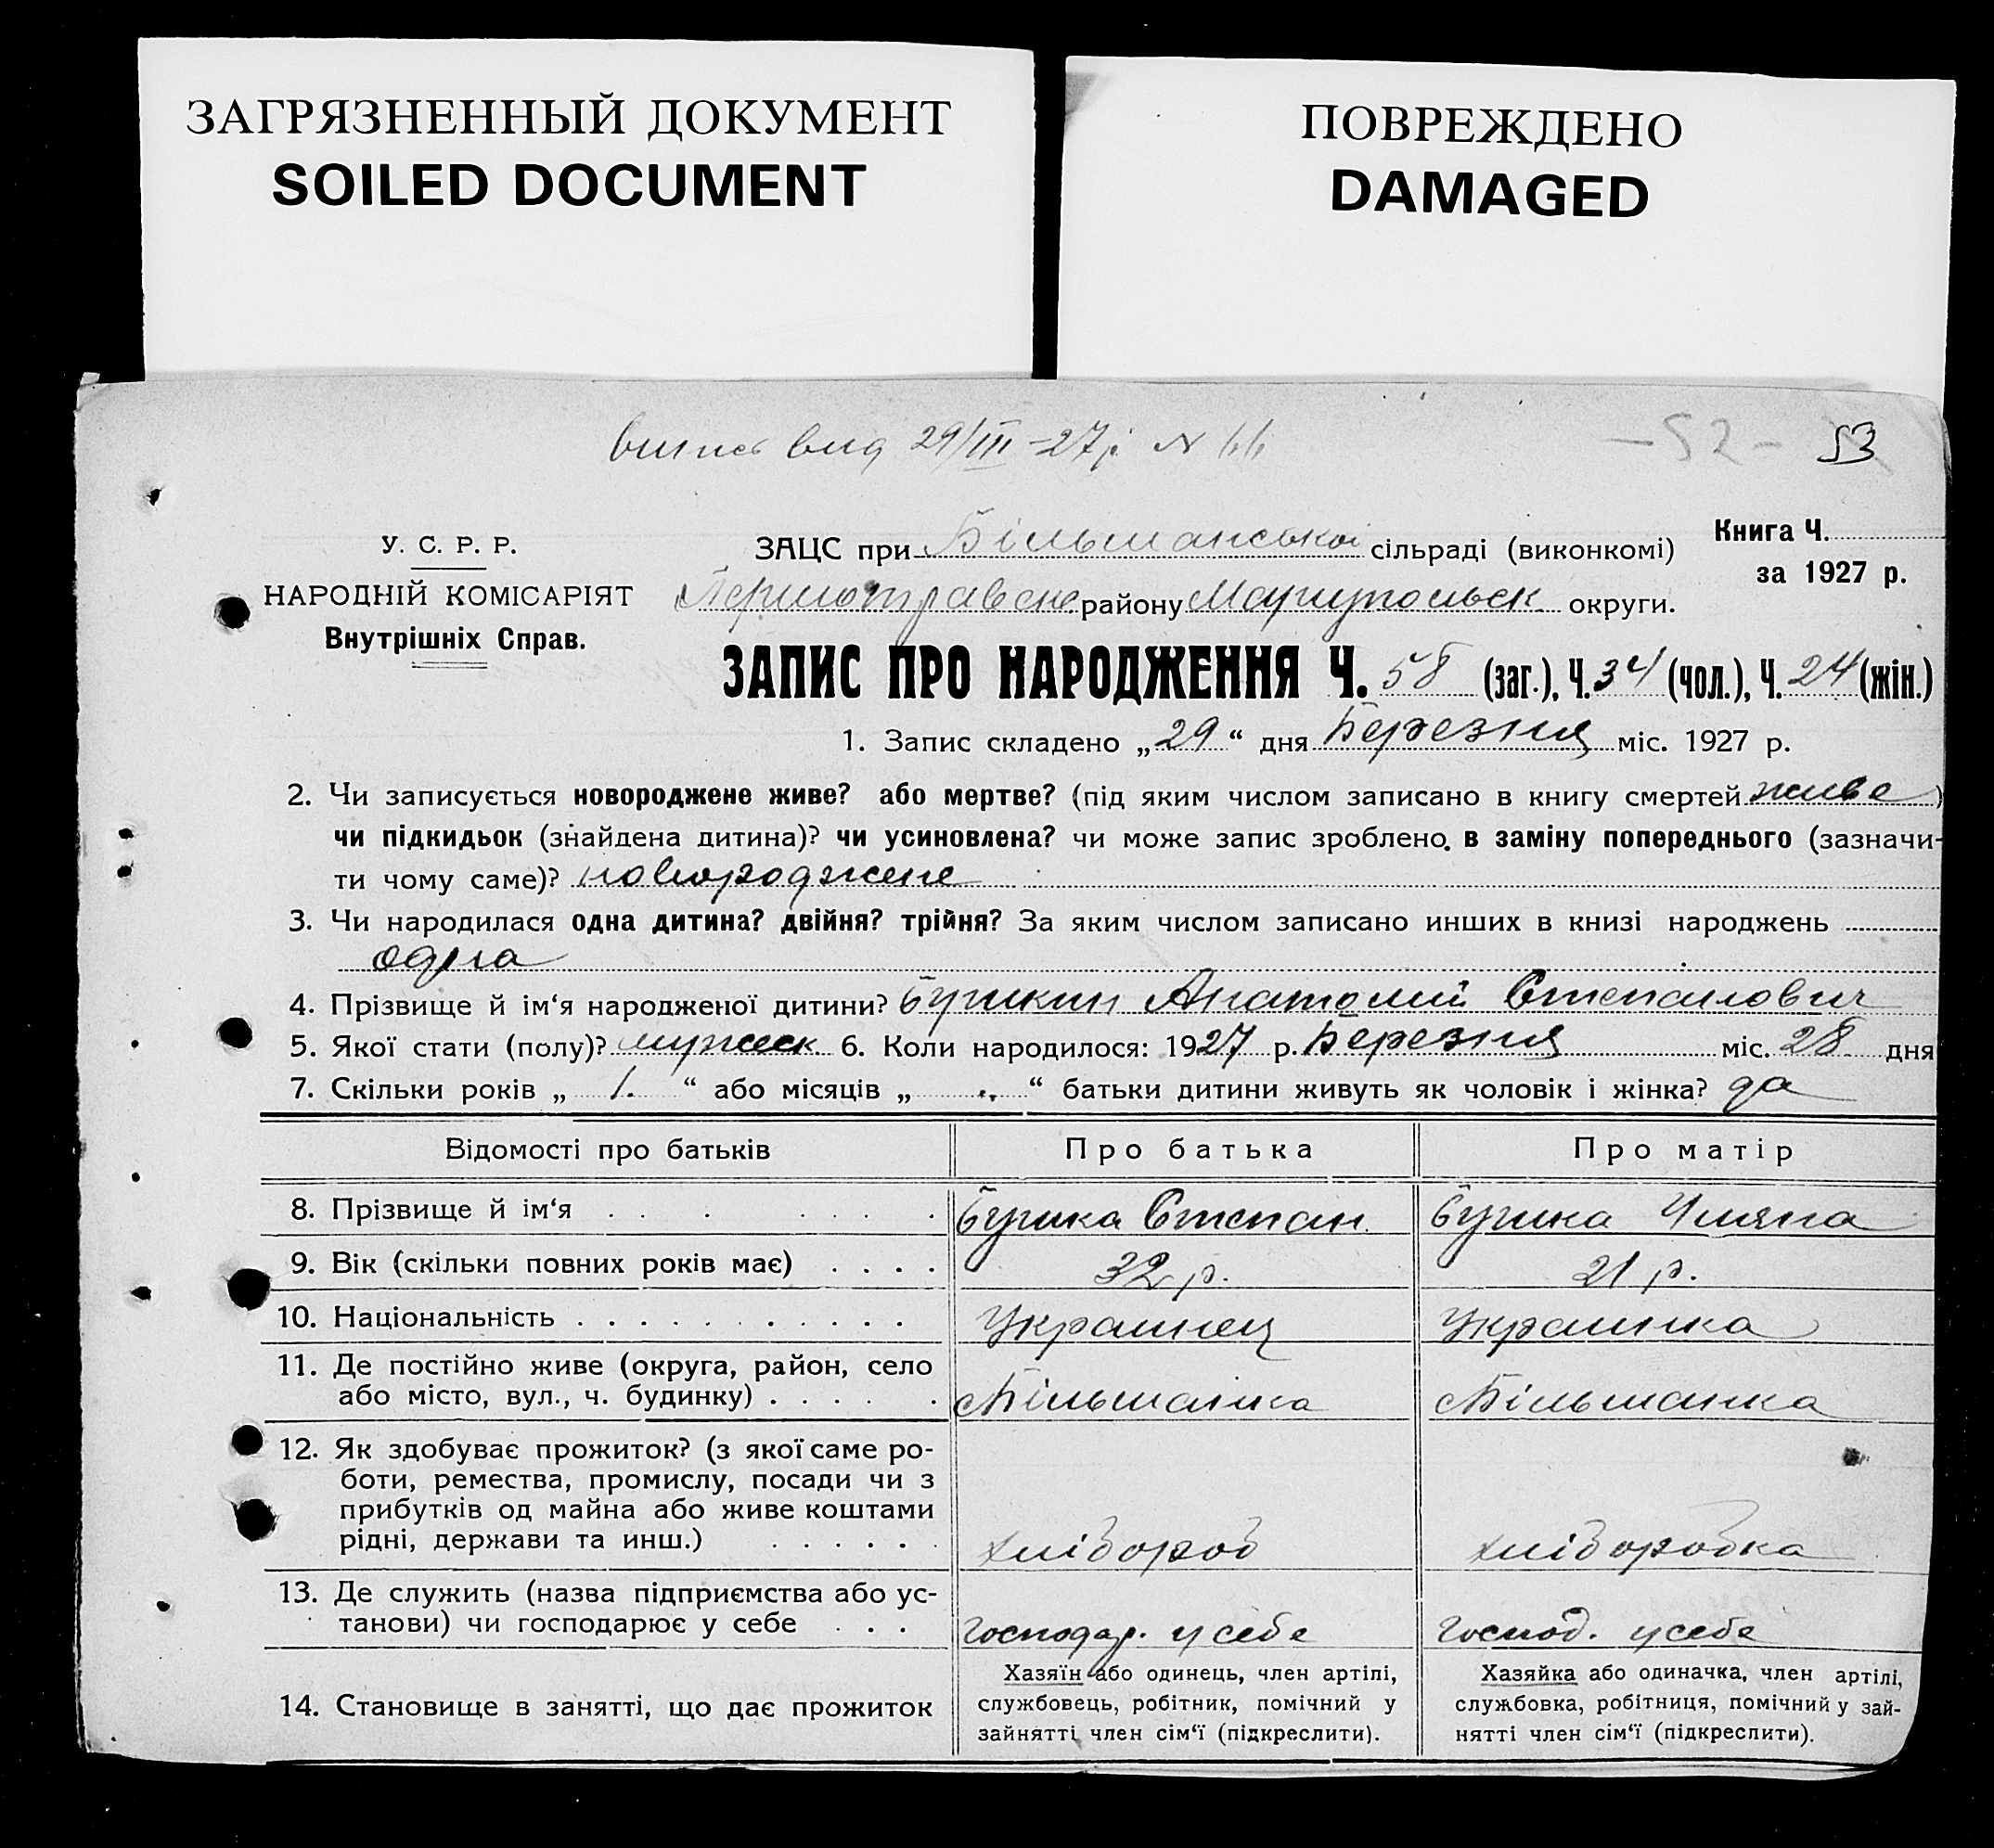 ЗАГРЯЗНЕННЫЙ ДОКУМЕНТ
SOILED DOCUMENT
ПОВРЕЖДЕНО
DAMAGED
випис вид 29/III-27р. N 66
-52- 53
У. С. Р. Р.
НАРОДНІЙ КОМІСАРІЯТ
Внутрішніх Справ.
ЗАЦС при Більшанської сільраді (виконкомі)
Книга Ч.
за 1927 р.
району Мариупольск округи.
ЗАПИС ПРО НАРОДЖЕННЯ Ч. 58 (заг.), Ч. 34 (чол.), Ч. 24 (жін.)
1. Запис складено „29“ дня Березня міс. 1927 р.
2. Чи записується новороджене живе? або мертве? (під яким числом записано в книгу смертей живе)
чи підкидьок (знайдена дитина)? чи усиновлена? чи може запис зроблено. в заміну попереднього (зазначи-
ти чому саме)? новороджене
3. Чи народилася одна дитина? двійня? трійня? За яким числом записано инших в книзі народжень
одна
4. Прізвище й ім‘я народженої дитини? Анатолий Степанович
5. Якої стати (полу)? мужеск 6. Коли народилося: 1927 р. Березня міс. 28 дня
7. Скільки років „ 1. “ або місяців „ “ батьки дитини живуть як чоловік і жінка? да
Відомості про батьків
Про батька
Про матір
8. Прізвище й ім‘я
Степан
9. Вік (скільки повних років має)
32 р.
21 р.
10. Національність
Украинец
Украинка
11. Де постійно живе (округа, район, село
або місто, вул., ч. будинку)
Більшанка
Більшанка
12. Як здобуває прожиток? (з якої саме ро-
боти, ремества, промислу, посади чи з
прибутків од майна або живе коштами
рідні, держави та инш.)
хлібороб
хліборобка
13. Де служить (назва підприємства або ус-
танови) чи господарює у себе
господар. у себе
господ. у себе
14. Становище в занятті, що дає прожиток
Хазяїн або одинець, член артілі,
службовець, робітник, помічний у
зайнятті член сім‘ї (підкреслити).
Хазяйка або одиначка, член артілі,
службовка, робітниця, помічний у зай-
нятті член сім‘ї (підкреслити).